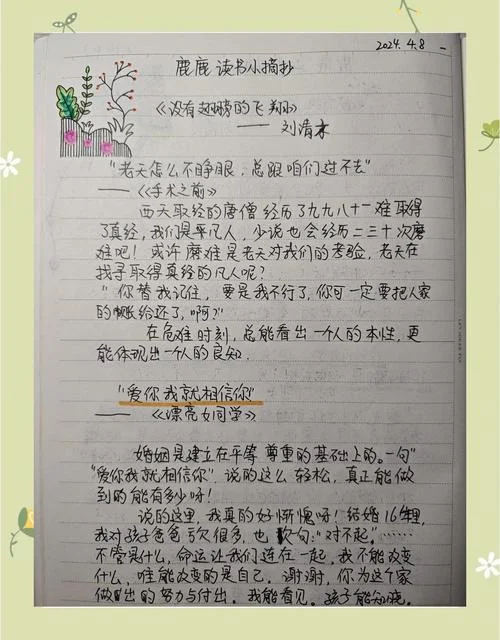 2024.4.8
鹿鹿 读书小摘抄
《没有翅膀的飞翔》
—— 刘清
"老天怎么不睁眼，总跟咱们过不去"
—— 《手术之前》
西天取经的唐僧 经历了九九八十一难 取得
了真经，我们是平凡人，少说也会经历二三十次磨
难吧！或许 磨难是老天对我们的考验，老天在
找寻取得真经的凡人呢？
"你替我记住，要是我不行了，你可一定要把人家
的账给还了，啊？"
在危难时刻，总能看出一个人的本性，更
能体现出一个人的良知。
"爱你我就相信你"
—— 《漂亮女同学》
婚姻是建立在平等 尊重的基础上的。一句"
"爱你我就相信你"，说的这么 轻松，真正能做
到的能有多少呀！
说的这里，我真的好惭愧呀！结婚16年里，
我对孩子爸爸 亏欠很多，也 欠句："对不起。"……
不管是什么，命运让我们连在一起，我不能改变
什么，唯能改变的是自己。谢谢，你为这个家
做出的努力与付出。我能看见。孩子能知晓。